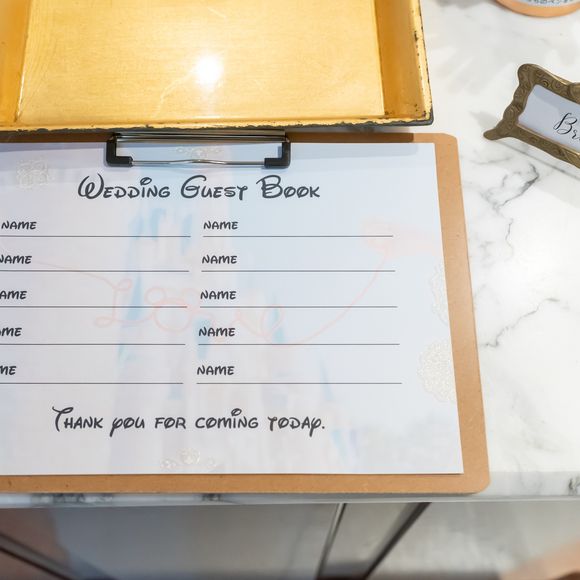 Wedding Guest Book
NAME NAME
NAME NAME
NAME NAME
NAME NAME
NAME NAME
Love
Thank you for coming today.